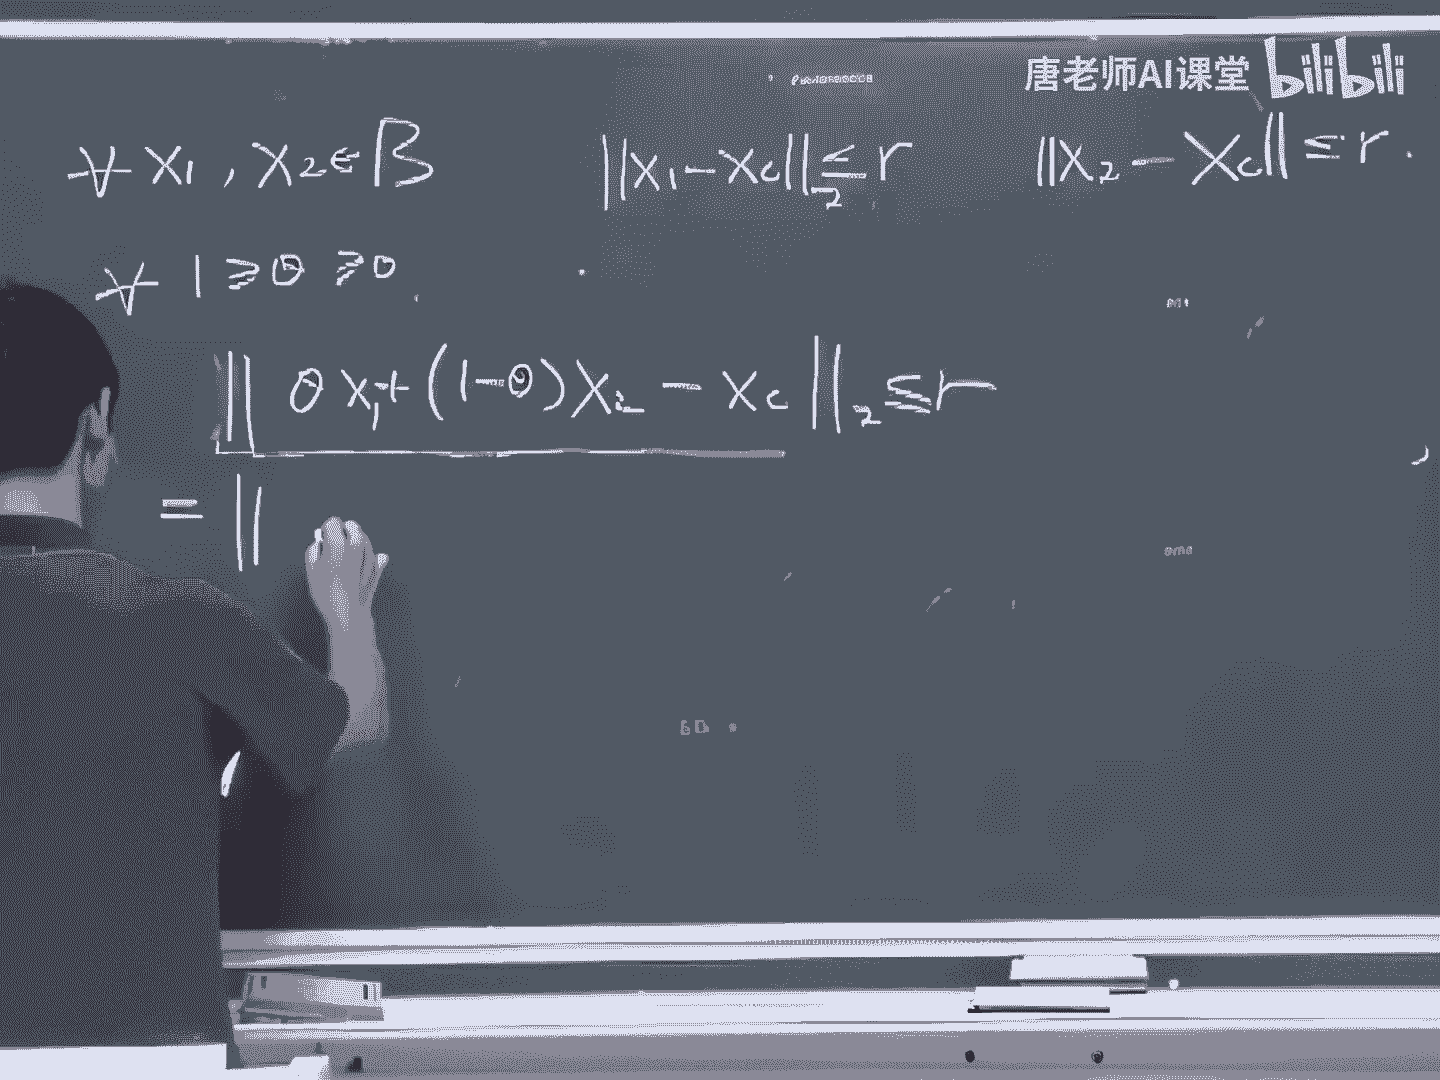 唐老师AI课堂 bilibili
∀ x₁, x₂ ∈ B  ||x₁ - x_c||₂ ≤ r  ||x₂ - x_c|| ≤ r.
∀ 1 ≥ θ ≥ 0
|| θx₁ + (1-θ)x₂ - x_c ||₂ ≤ r
= ||